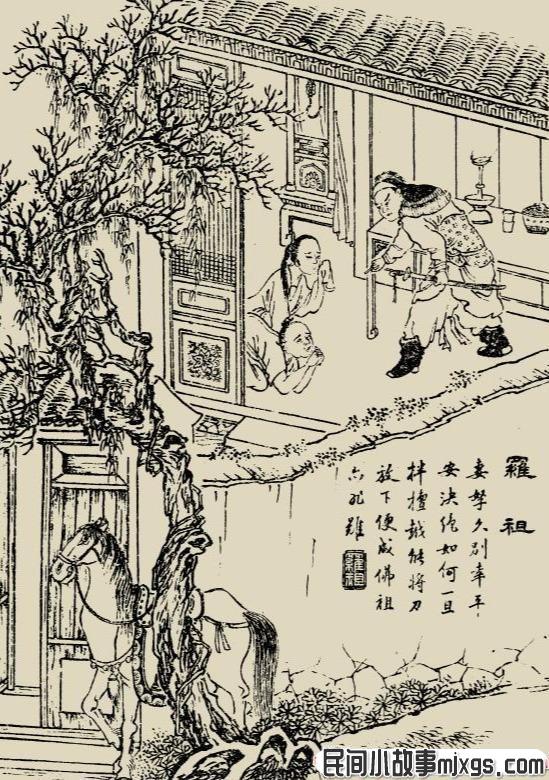 羅祖
妻孥久別幸平
安決絕如何一旦
拌檀越能將刀
放下便成佛祖
亦非難
羅祖
民间小故事mixgs.com